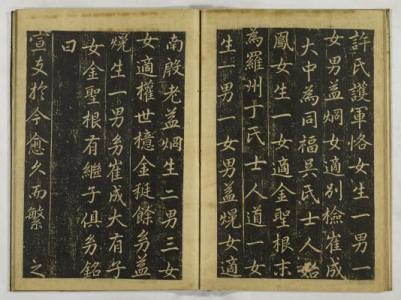 許氏護軍恪女生一男一
女男益炯女適別檢崔成
大中為同福吳氏士人始
鳳女生一女適金聖根末
為羅州丁氏士人道一女
生一男一女男益熀女適
南殷老益炯生二男三女
女適權世檍金鋋餘㓜益
熀生一男㓜崔成大有子
女金聖根有繼子俱㓜銘
曰
宣支於今愈久而繁之